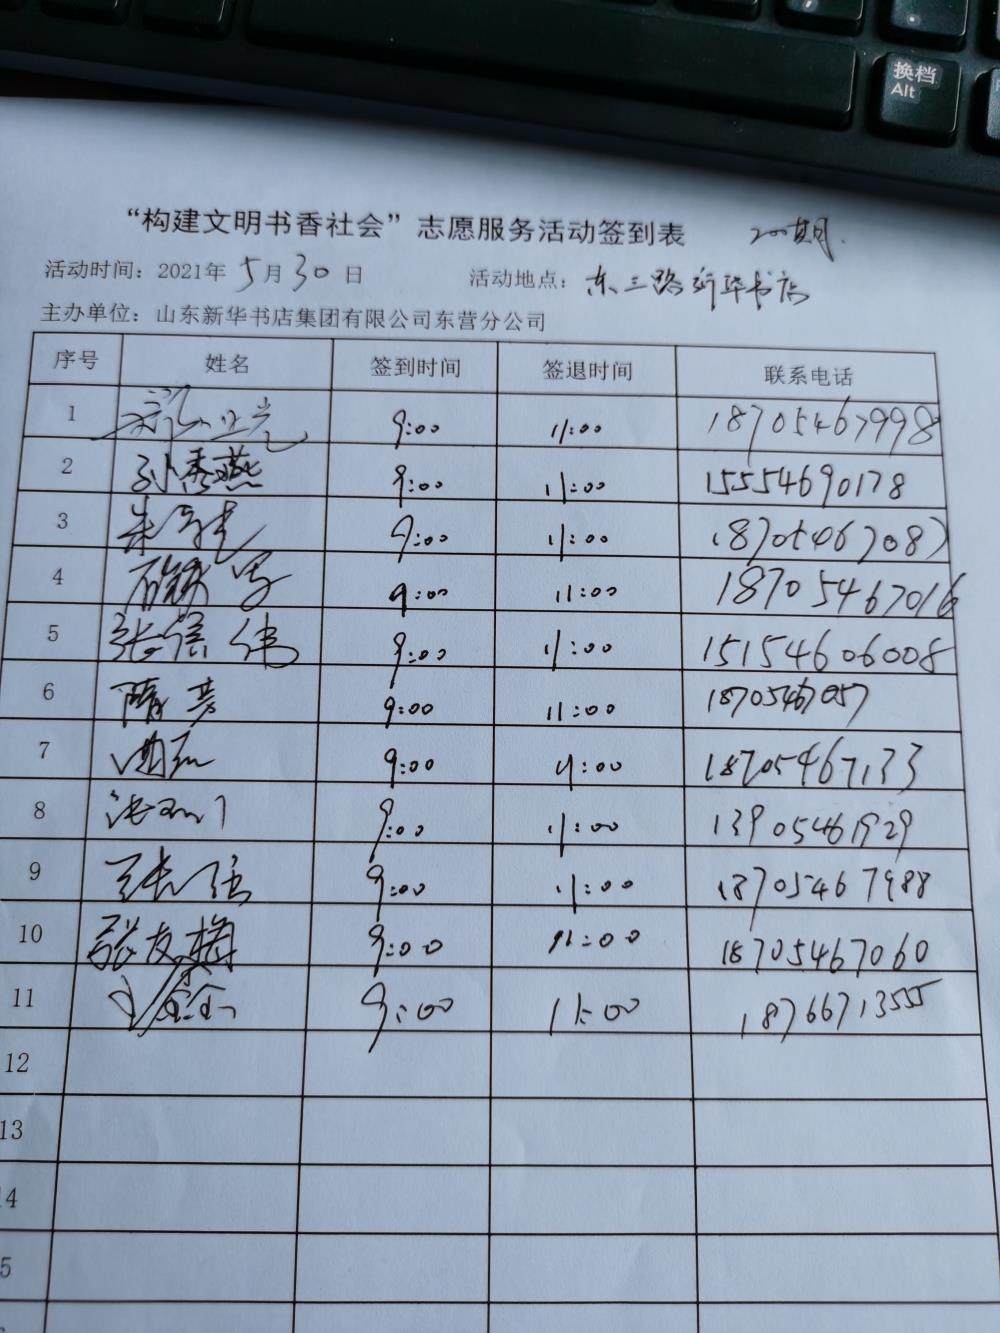 换档
Alt
“构建文明书香社会”志愿服务活动签到表 200期.
活动时间：2021年 5月30日 活动地点：东三路新华书店
主办单位：山东新华书店集团有限公司东营分公司
序号 姓名 签到时间 签退时间 联系电话
1 9:00 11:00 18705467998
2 孙秀燕 9:00 11:00 15554690178
3 9:00 11:00 18705467087
4 9:00 11:00 18705467016
5 张信伟 9:00 11:00 15154606008
6 隋芳 9:00 11:00 18705467057
7 9:00 11:00 18705467133
8 9:00 11:00 13905461929
9 9:00 11:00 18705467988
10 张友梅 9:00 11:00 18705467060
11 9:00 11:00 18766713555
12
13
14
15